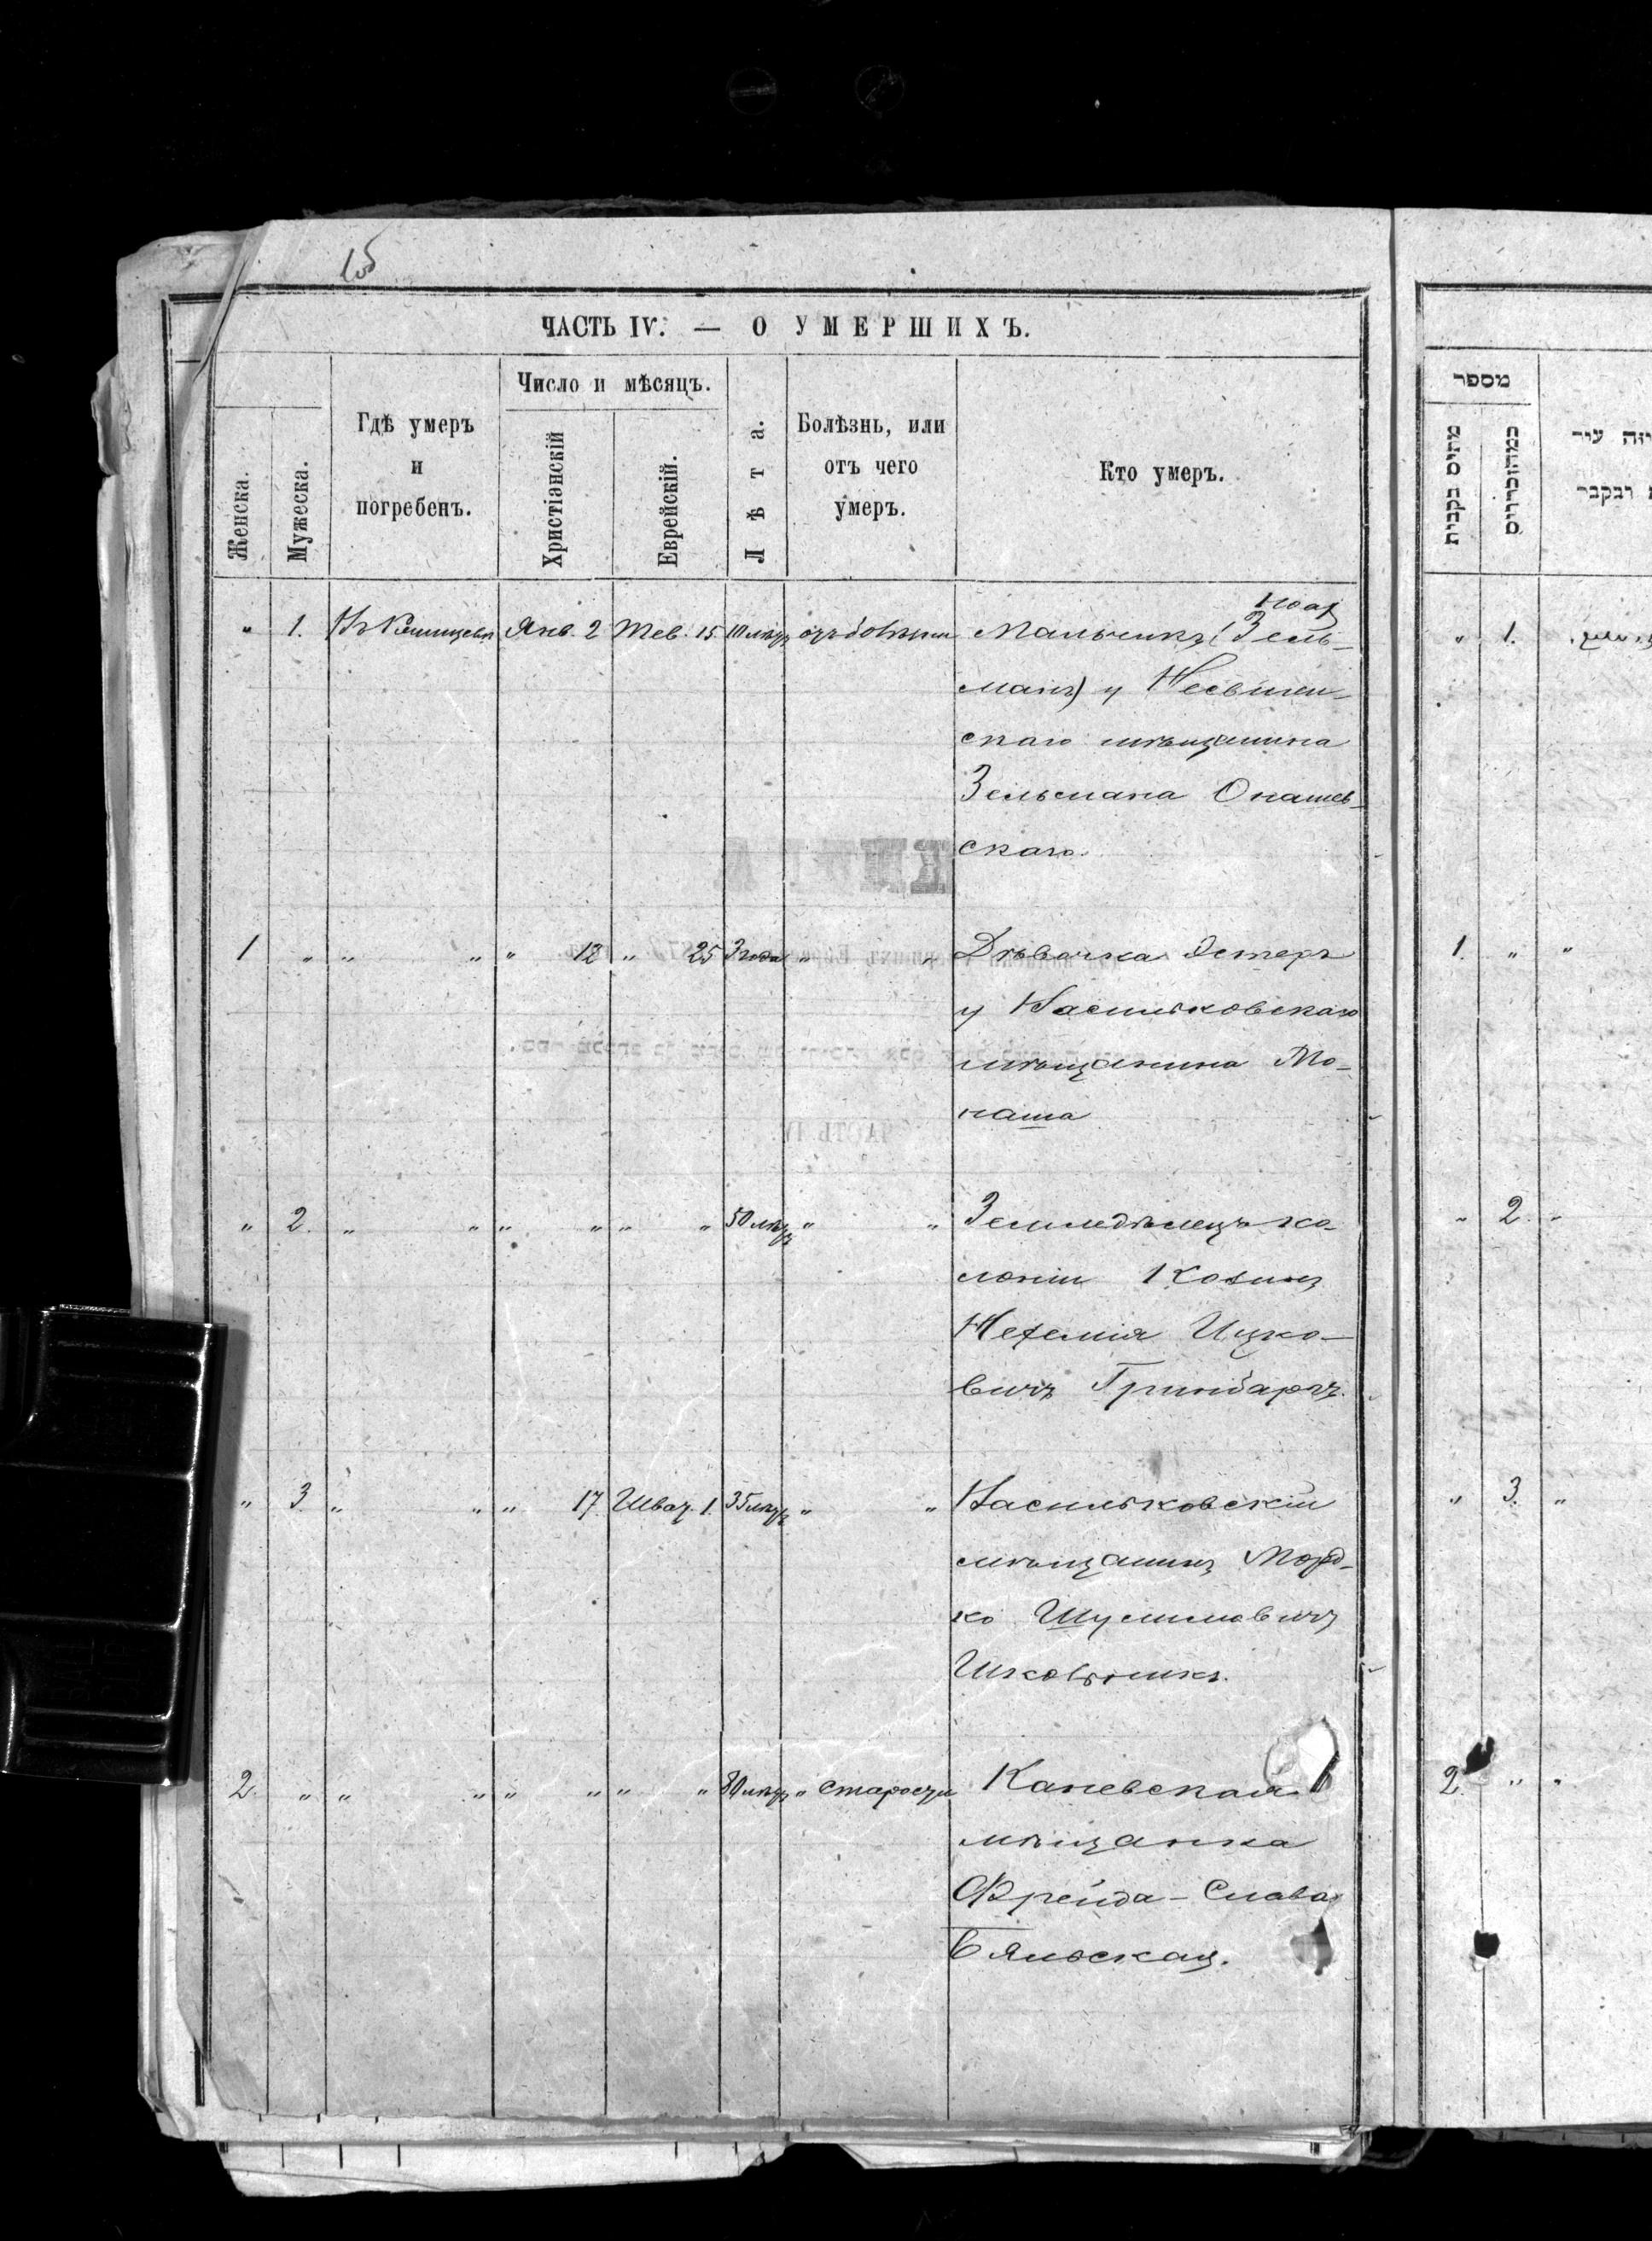 ЧАСТЬ IV. — О УМЕРШИХЪ.
Женска.
Мужеска.
Гдѣ умеръ
и
погребенъ.
Число и мѣсяцъ.
Христіанскій
Еврейскій.
Лѣта.
Болѣзнь, или
отъ чего
умеръ.
Кто умеръ.
Ноах
" 1. Янв. 2 Тев. 15 лѣтъ Мальчикъ (Зель-
манъ) у
скаго мѣщанина
Зельмана Онашев-
скаго
1 " " " " 12 " 25 3 года " " Дѣвочка Эстеръ
у Васильковскаго
мѣщанина Мо-
наша
" 2. " " " " " " 50 лѣтъ " " Земледѣлецъ ко-
лоніи
Нехемія Ицко-
вичъ Гринбаргъ.
" 3. " " " 17 Шват. 1. 35 лѣтъ " " Васильковскій
мѣщанинъ Морд-
ко Шулимовичъ
2. " " " " " " " 80 лѣтъ " старости Каневская
мѣщанка
Фрейда-Слава
Бяльская.
מספר
" 1.
1. " "
" 2. "
" 3. "
2. " "